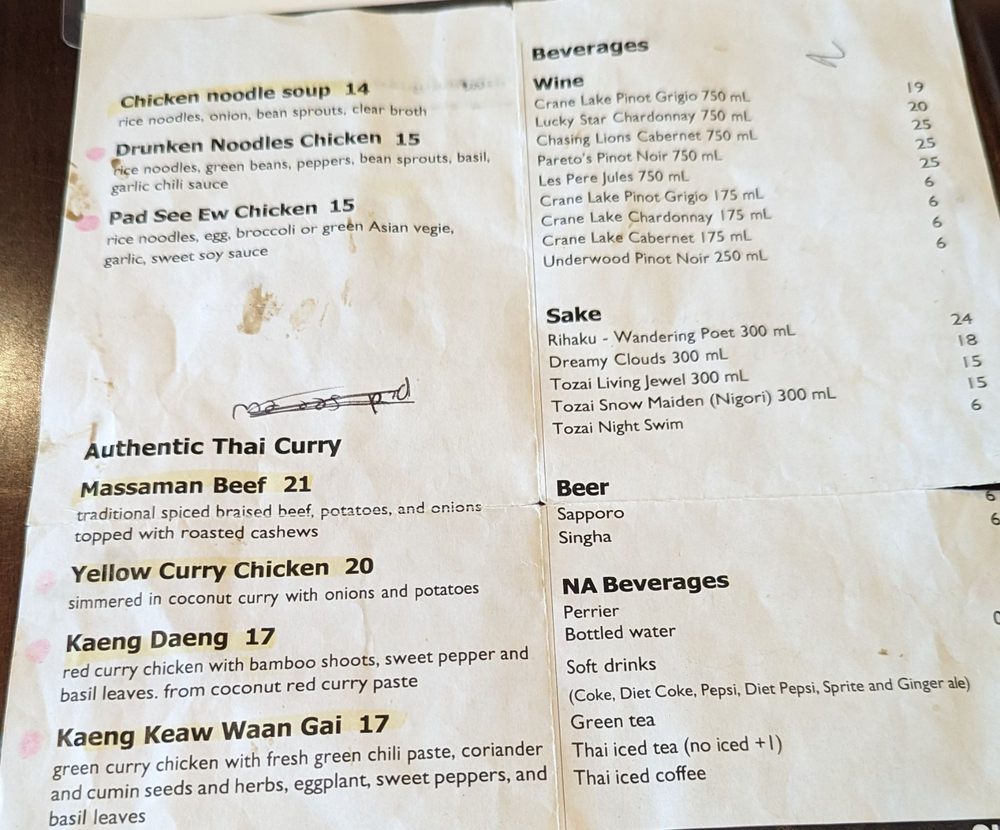 Chicken noodle soup 14
rice noodles, onion, bean sprouts, clear broth
Drunken Noodles Chicken 15
rice noodles, green beans, peppers, bean sprouts, basil,
garlic chili sauce
Pad See Ew Chicken 15
rice noodles, egg, broccoli or green Asian vegie,
garlic, sweet soy sauce
Authentic Thai Curry
Massaman Beef 21
traditional spiced braised beef, potatoes, and onions
topped with roasted cashews
Yellow Curry Chicken 20
simmered in coconut curry with onions and potatoes
Kaeng Daeng 17
red curry chicken with bamboo shoots, sweet pepper and
basil leaves. from coconut red curry paste
Kaeng Keaw Waan Gai 17
green curry chicken with fresh green chili paste, coriander
and cumin seeds and herbs, eggplant, sweet peppers, and
basil leaves
Beverages
Wine
Crane Lake Pinot Grigio 750 mL 19
Lucky Star Chardonnay 750 mL 20
Chasing Lions Cabernet 750 mL 25
Pareto's Pinot Noir 750 mL 25
Les Pere Jules 750 mL 25
Crane Lake Pinot Grigio 175 mL 6
Crane Lake Chardonnay 175 mL 6
Crane Lake Cabernet 175 mL 6
Underwood Pinot Noir 250 mL 6
Sake
Rihaku - Wandering Poet 300 mL 24
Dreamy Clouds 300 mL 18
Tozai Living Jewel 300 mL 15
Tozai Snow Maiden (Nigori) 300 mL 15
Tozai Night Swim 6
Beer
Sapporo 6
Singha 6
NA Beverages
Perrier
Bottled water
Soft drinks
(Coke, Diet Coke, Pepsi, Diet Pepsi, Sprite and Ginger ale)
Green tea
Thai iced tea (no iced +1)
Thai iced coffee